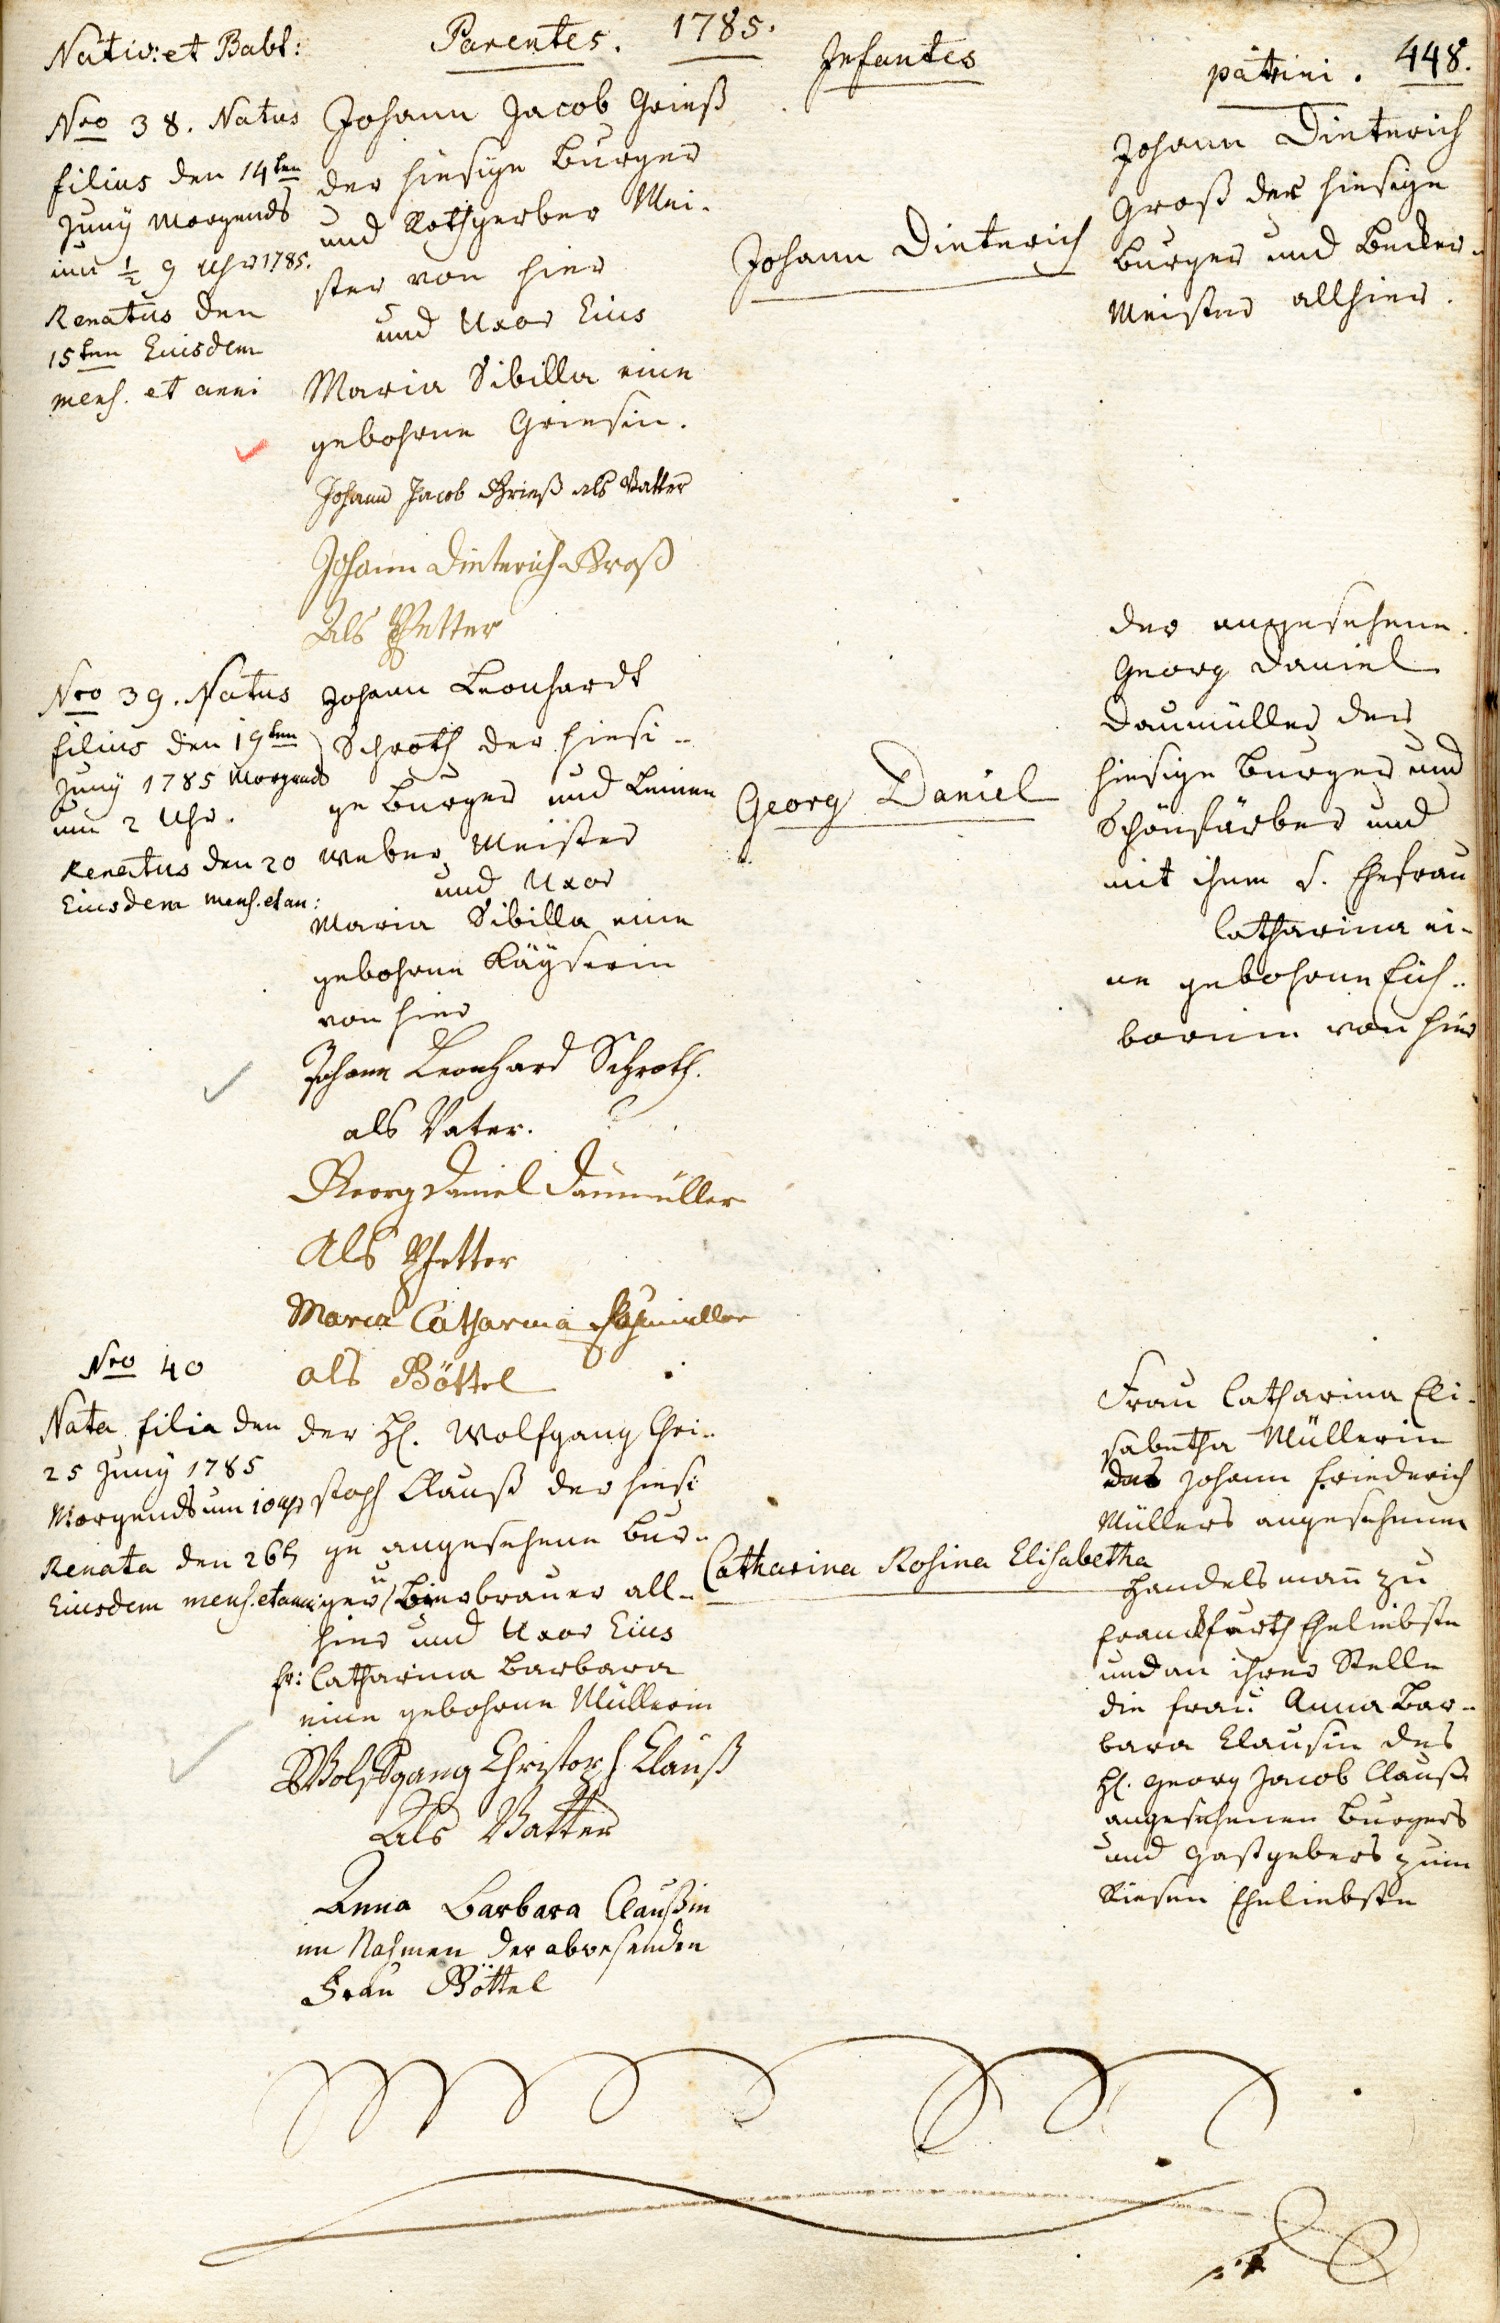 Nativ: et Babt:
Parentes. 1785.
Infantes
patrini. 448.
Nro 38. Natus
filius den 14ten
Juny Morgends
um ½ 9 Uhr 1785.
Renatus den
15ten Eiusdem
mens. et anni
Johann Jacob Grieß
der hiesige Burger
und Rothgerber Mei-
ster von hier
und Uxor Eius
Maria Sibilla eine
gebohrne Griesin.
Johann Jacob Grieß als Vatter
Johann Dieterich Groß
Als Pfetter
Johann Dieterich
Johann Dieterich
Groß der hiesige
Burger und Becker-
Meister allhier.
Nro 39. Natus
filius den 19ten
Juny 1785 Morgends
um 2 Uhr.
Renatus den 20
Eiusdem mens. et an:
Johann Leonhardt
Schroth der hiesi-
ge Burger und Leinen
weber Meister
und Uxor
Maria Sibilla eine
gebohrne Käyserin
von hier
Johann Leonhard Schroth.
als Vater.
Georg Daniel Daumüller
Als Pfetter
Maria Catharina
als Göttel
Georg Daniel
der angesehene
Georg Daniel
Daumüller der
hiesige Burger und
Schönfärber und
mit ihm s. Ehefrau
Catharina ei-
ne gebohrne Eich-
bornin von hier
Nro 40
Nata filia den
25 Juny 1785
Morgends um 10 Uhr
Renata den 26t
Eiusdem mens. et anni
der H. Wolfgang Chri-
stoph Clauß der hiesi
ge angesehene Bur-
ger u Bierbrauer all-
hier und Uxor Eius
fr: Catharina Barbara
eine gebohrne Müllerin
Wolffgang Christoph Clauß
Als Vatter
Anna Barbara Claußin
im Nahmen der abwesenden
Frau Göttel
Catharina Rosina Elisabetha
Frau Catharina Eli-
sabetha Müllerin
des Johann Friederich
Müllers angesehenen
Handelsmann zu
Franckfurth Eheliebste
und an ihrer Stelle
die Frau Anna Bar-
bara Clausin des
H. Georg Jacob Clauß
angesehenen Burgers
und Gastgebers zum
Riesen Eheliebste